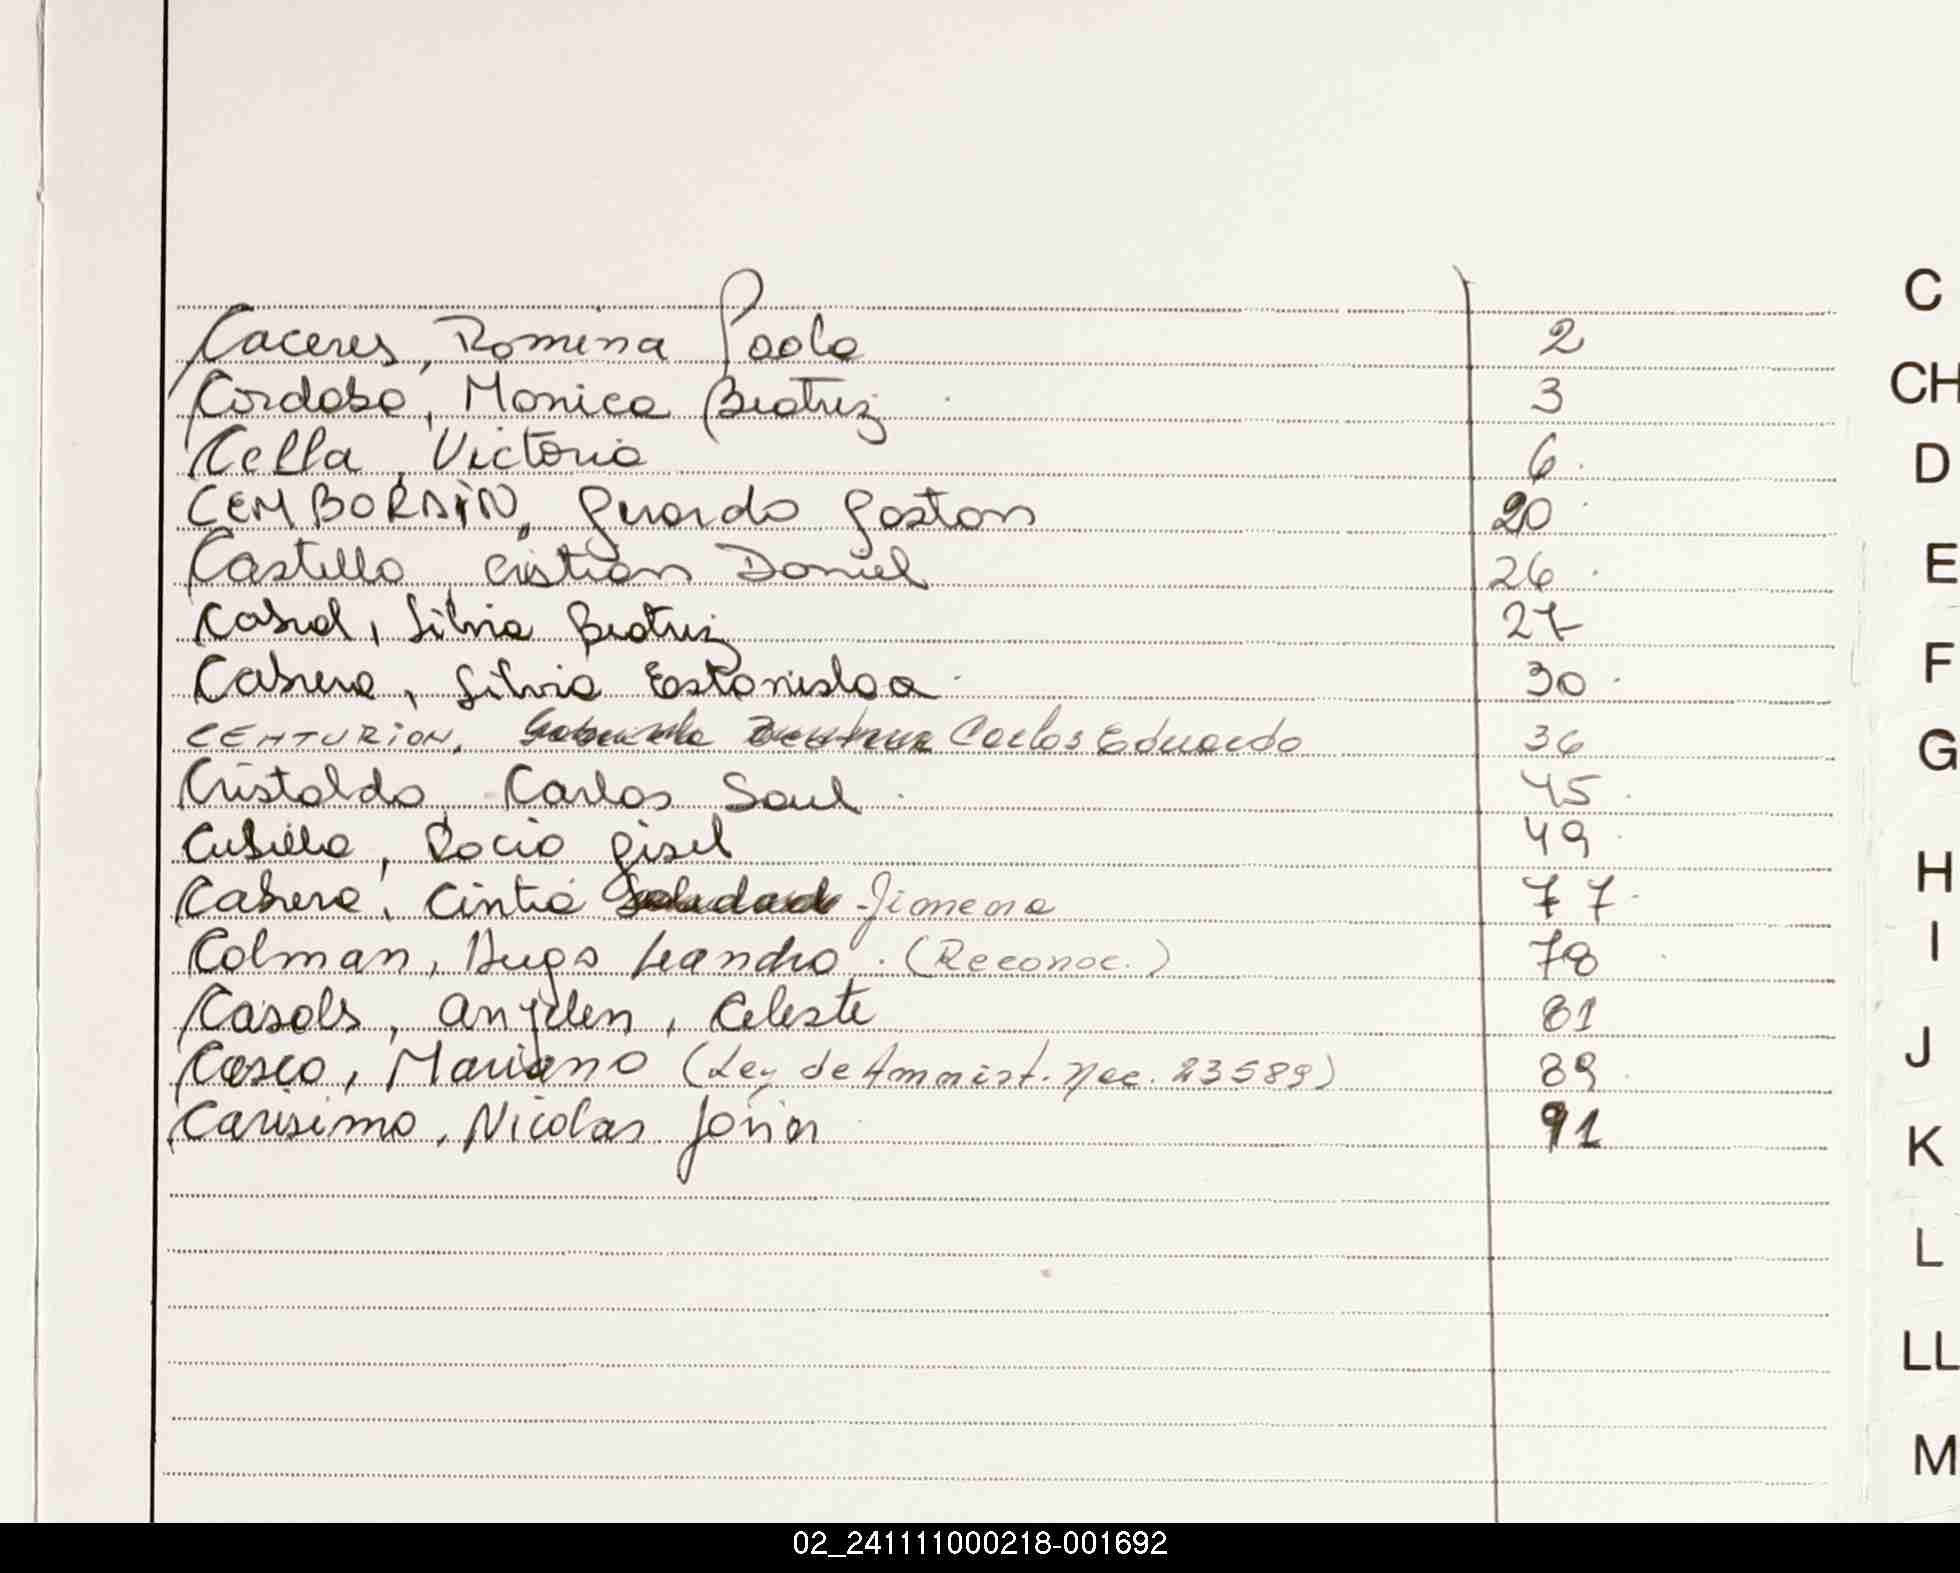 Caceres, Romina Paola 2
Cordoba, Monica Beatriz 3
Cella, Victoria 6
CEMBORAIN, Gerardo Gaston 20
Castillo, Cristian Daniel 26
Cabral, Silvia Beatriz 27
Cabrera, Silvia Estanislaa 30
CENTURION, Carlos Eduardo 36
Cristaldo, Carlos Saul 45
Cubilla, Rocio Gisel 49
Cabrera, Cintia Soledad Jimena 77
Colman, Hugo Leandro (Reconoc.) 78
Casals, Angelen, Celeste 81
Casco, Mariano (Ley de Amnist. Nac. 23589) 89
Carisimo, Nicolas Javier 91
C
CH
D
E
F
G
H
I
J
K
L
LL
M
02_241111000218-001692